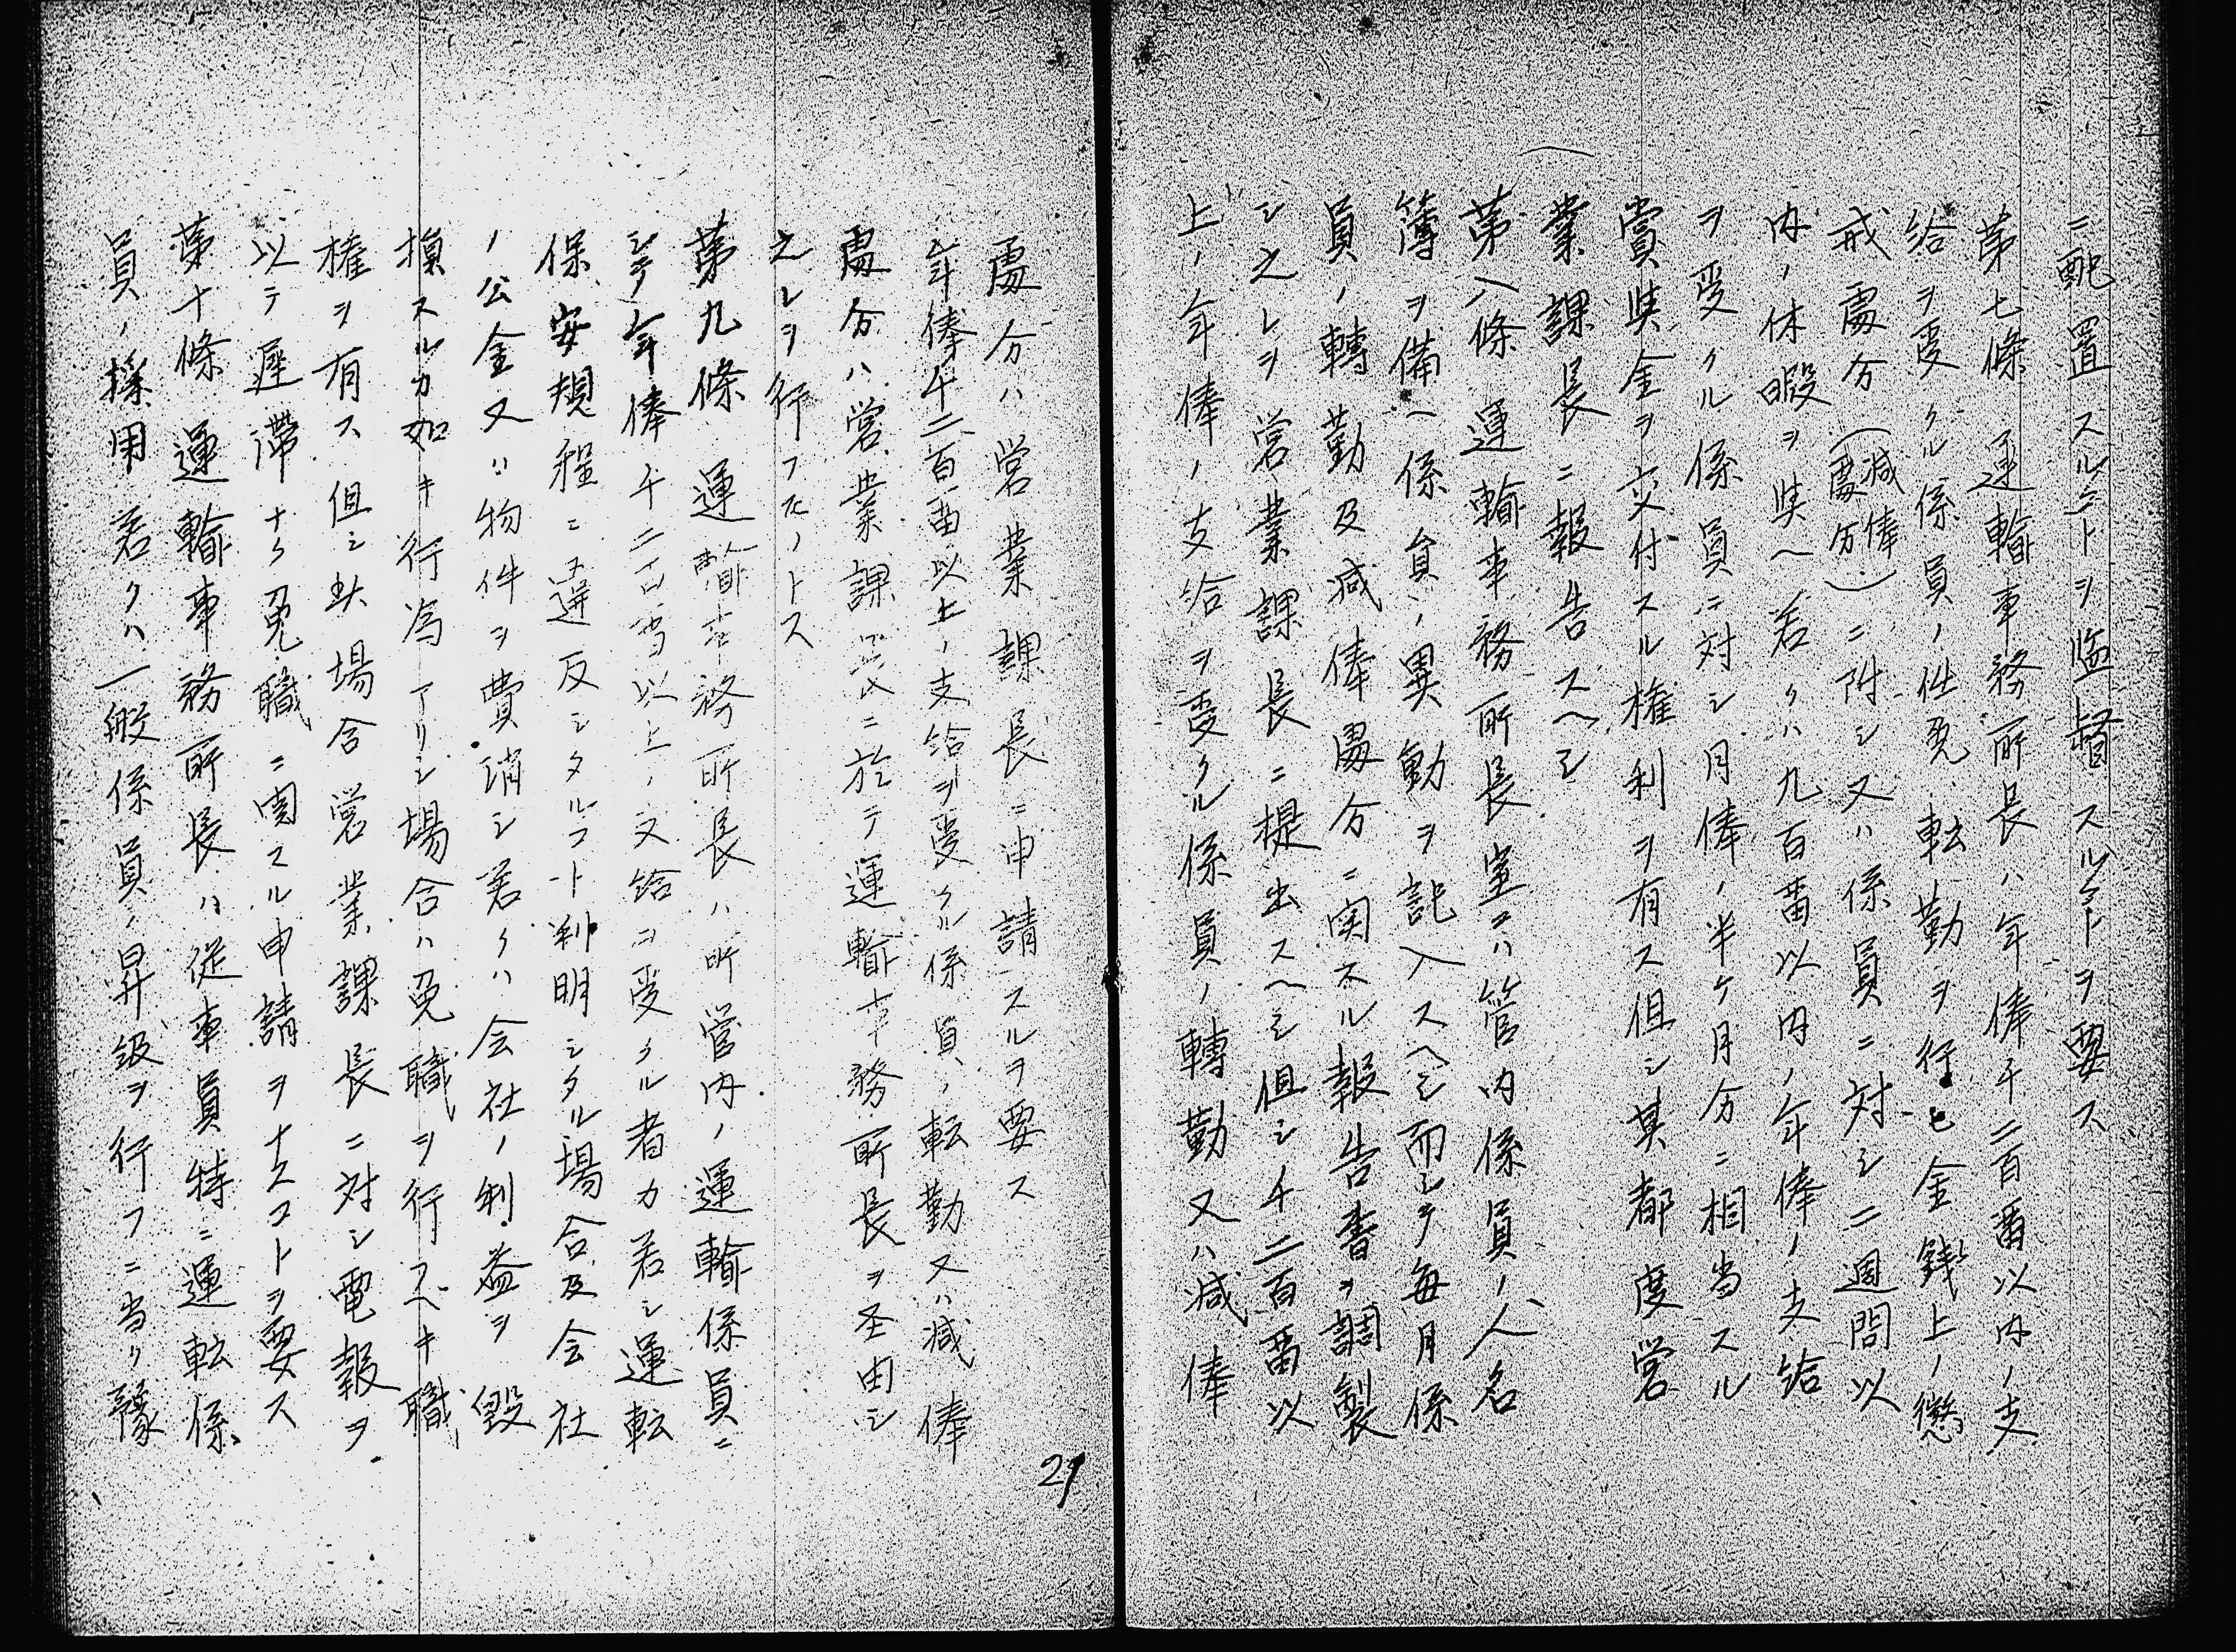 ニ配置スルヿヲ監督スルヿヲ要ス
第七條 運輸事務所長ハ年俸千二百留以内ノ支
給ヲ受クル係員ノ任免転勤ヲ行ヒ金銭上ノ懲
戒處分(減俸處分)ニ附シ又ハ係員ニ対シ二週間以
内ノ休暇ヲ奨ヘ若クハ九百留以内ノ年俸ノ支給
ヲ受クル係員ニ対シ月俸ノ半ケ月分ニ相当スル
賞奨金ヲ交付スル権利ヲ有ス但シ其都度営
業課長ニ報告スヘシ
第八條 運輸事務所長室ニハ管内係員ノ人名
簿ヲ備ヘ係員ノ異動ヲ記入スヘシ而シテ毎月係
員ノ轉勤及減俸處分ニ関スル報告書ヲ調製
シ之レヲ営業課長ニ提出スヘシ但シ千二百留以
上ノ年俸ノ支給ヲ受クル係員ノ轉勤又ハ減俸
處分ハ営業課長ニ申請スルヲ要ス
年俸千二百留以上ノ支給ヲ受クル係員ノ転勤又ハ減俸
處分ハ営業課ニ於テ運輸事務所長ヲ圣由シ
之レヲ行フモノトス
第九條 運輸事務所長ハ所管内ノ運輸係員ニ
シテ年俸千二百留以上ノ支給ヲ受クル者カ若シ運転
保安規程ニ違反シタルコト判明シタル場合及会社
ノ公金又ハ物件ヲ費消シ若クハ会社ノ利益ヲ毀
損スルカ如キ行為アリシ場合ハ免職ヲ行フヘキ職
権ヲ有ス但シ此場合営業課長ニ対シ電報ヲ
以テ遅滞ナク免職ニ関スル申請ヲナスコトヲ要ス
第十條 運輸事務所長ハ従事員特ニ運転係
員ノ採用若クハ一般係員ノ昇級ヲ行フニ当リ豫
29